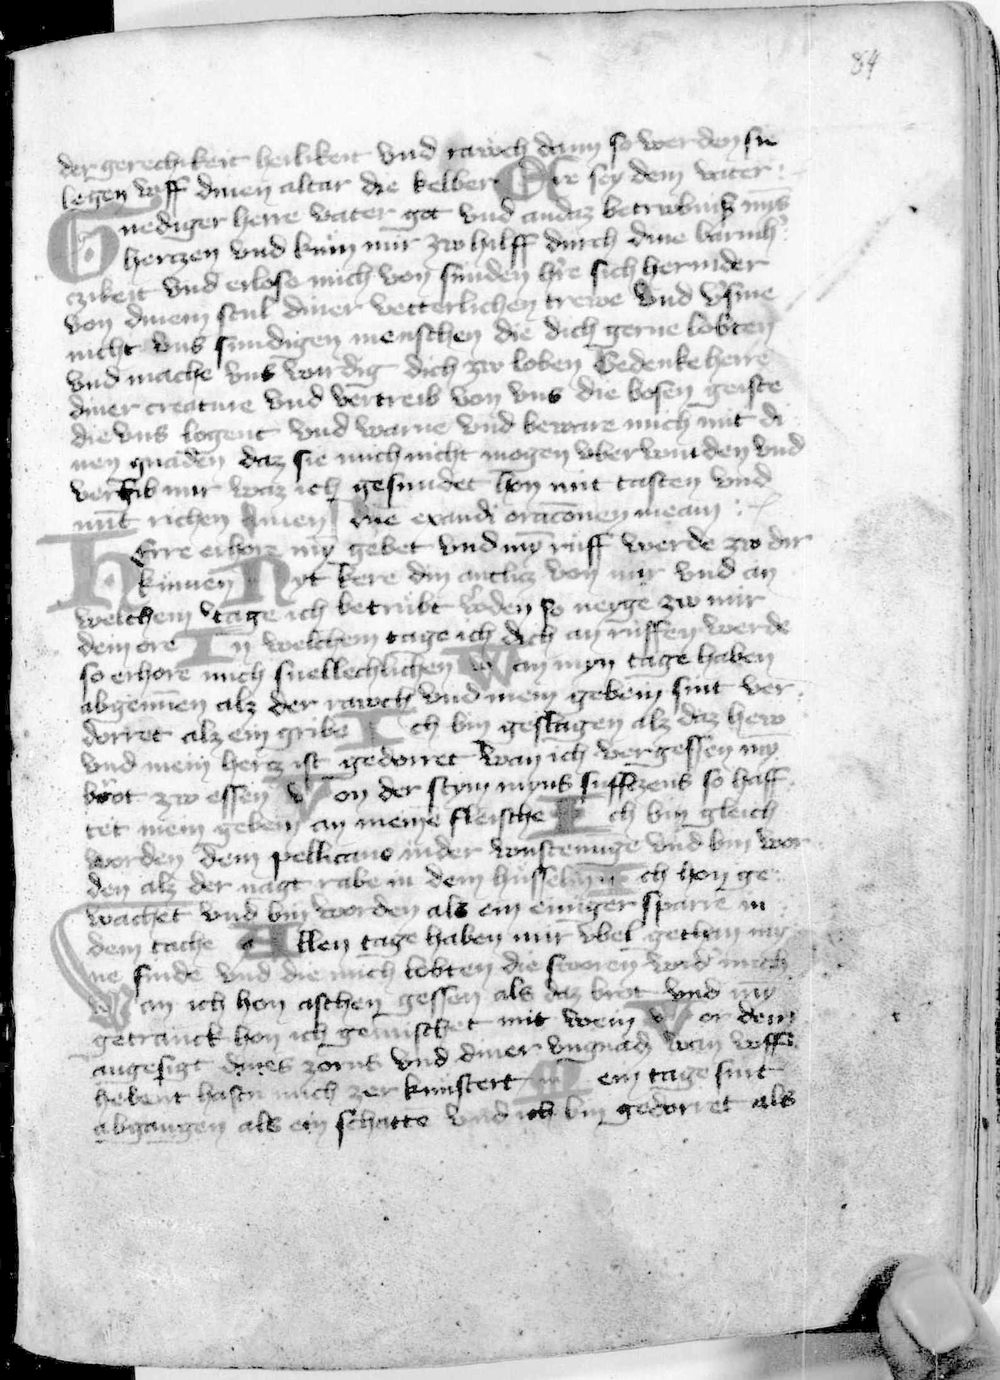 84
der gerechikeit heilikeit vnd rawch dann so werden sie
legen vff dinen altar die kelber Ere sey dem vater
Gnediger herre vater got vnd andaz betrubnis mȳs
hertzen vnd kum mir zw hilff durch dine barmh
czikeit vnd erlose mich von sunden here sich hernider
von dinem stul diner vetterlichen trewe vnd v̓sme
nicht vns sundigen menschen die dich gerne lobten
vnd mache vns wirdig dich zw loben Gedenke herre
diner creature vnd vertreib von vns die bosen geiste
die vns logent vnd warne vnd beware mich mit di
nen gnaden daz sie mich nicht mogen vberwinden vnd
vergib mir waz ich gesundet hon mit tasten vnd
mit richen Amen dne exaudi oracōnen meam
HErre erhore mȳ gebet vnd mȳ ruff werde zw dir
kūmen Nyt kere din antlicz von mir vnd an
welchem tage ich betrubt w̓den so neyge zw mir
dein ore In welchem tage ich dich an ruffen werde
so erhore mich snellechlichen Wan myn tage haben
abgenūmen alz der rawch vnd mein gebein sint ver
dorret alz ein gribe Ich bin geslagen alz daz hew
vnd mein hercz ist gedorret wan ich vergessen my
brot zw essen Von der stym myns sufftzens so haff
tet mein gebein an meine fleische Ich bin gleich
worden dem pellicano inder wustenunge vnd bin wor
den alz der nagt rabe in dem husselin Ich hon ge
wachet vnd bin worden als ein einiger sparre in
dem tache Allen tage haben mir vbel gethan my
ne finde vnd die mich lobten die sworen wid̓ mich
Wan ich hon aschen gessen als daz brot vnd my
getranck hon ich gemischet mit wein Vor dem
angesigt dines zorns vnd diner vngnad wan vffh
hebent hastu mich zer kinstert Mein tage sint
abgangen als ein schatte vnd ich bin gedorret als